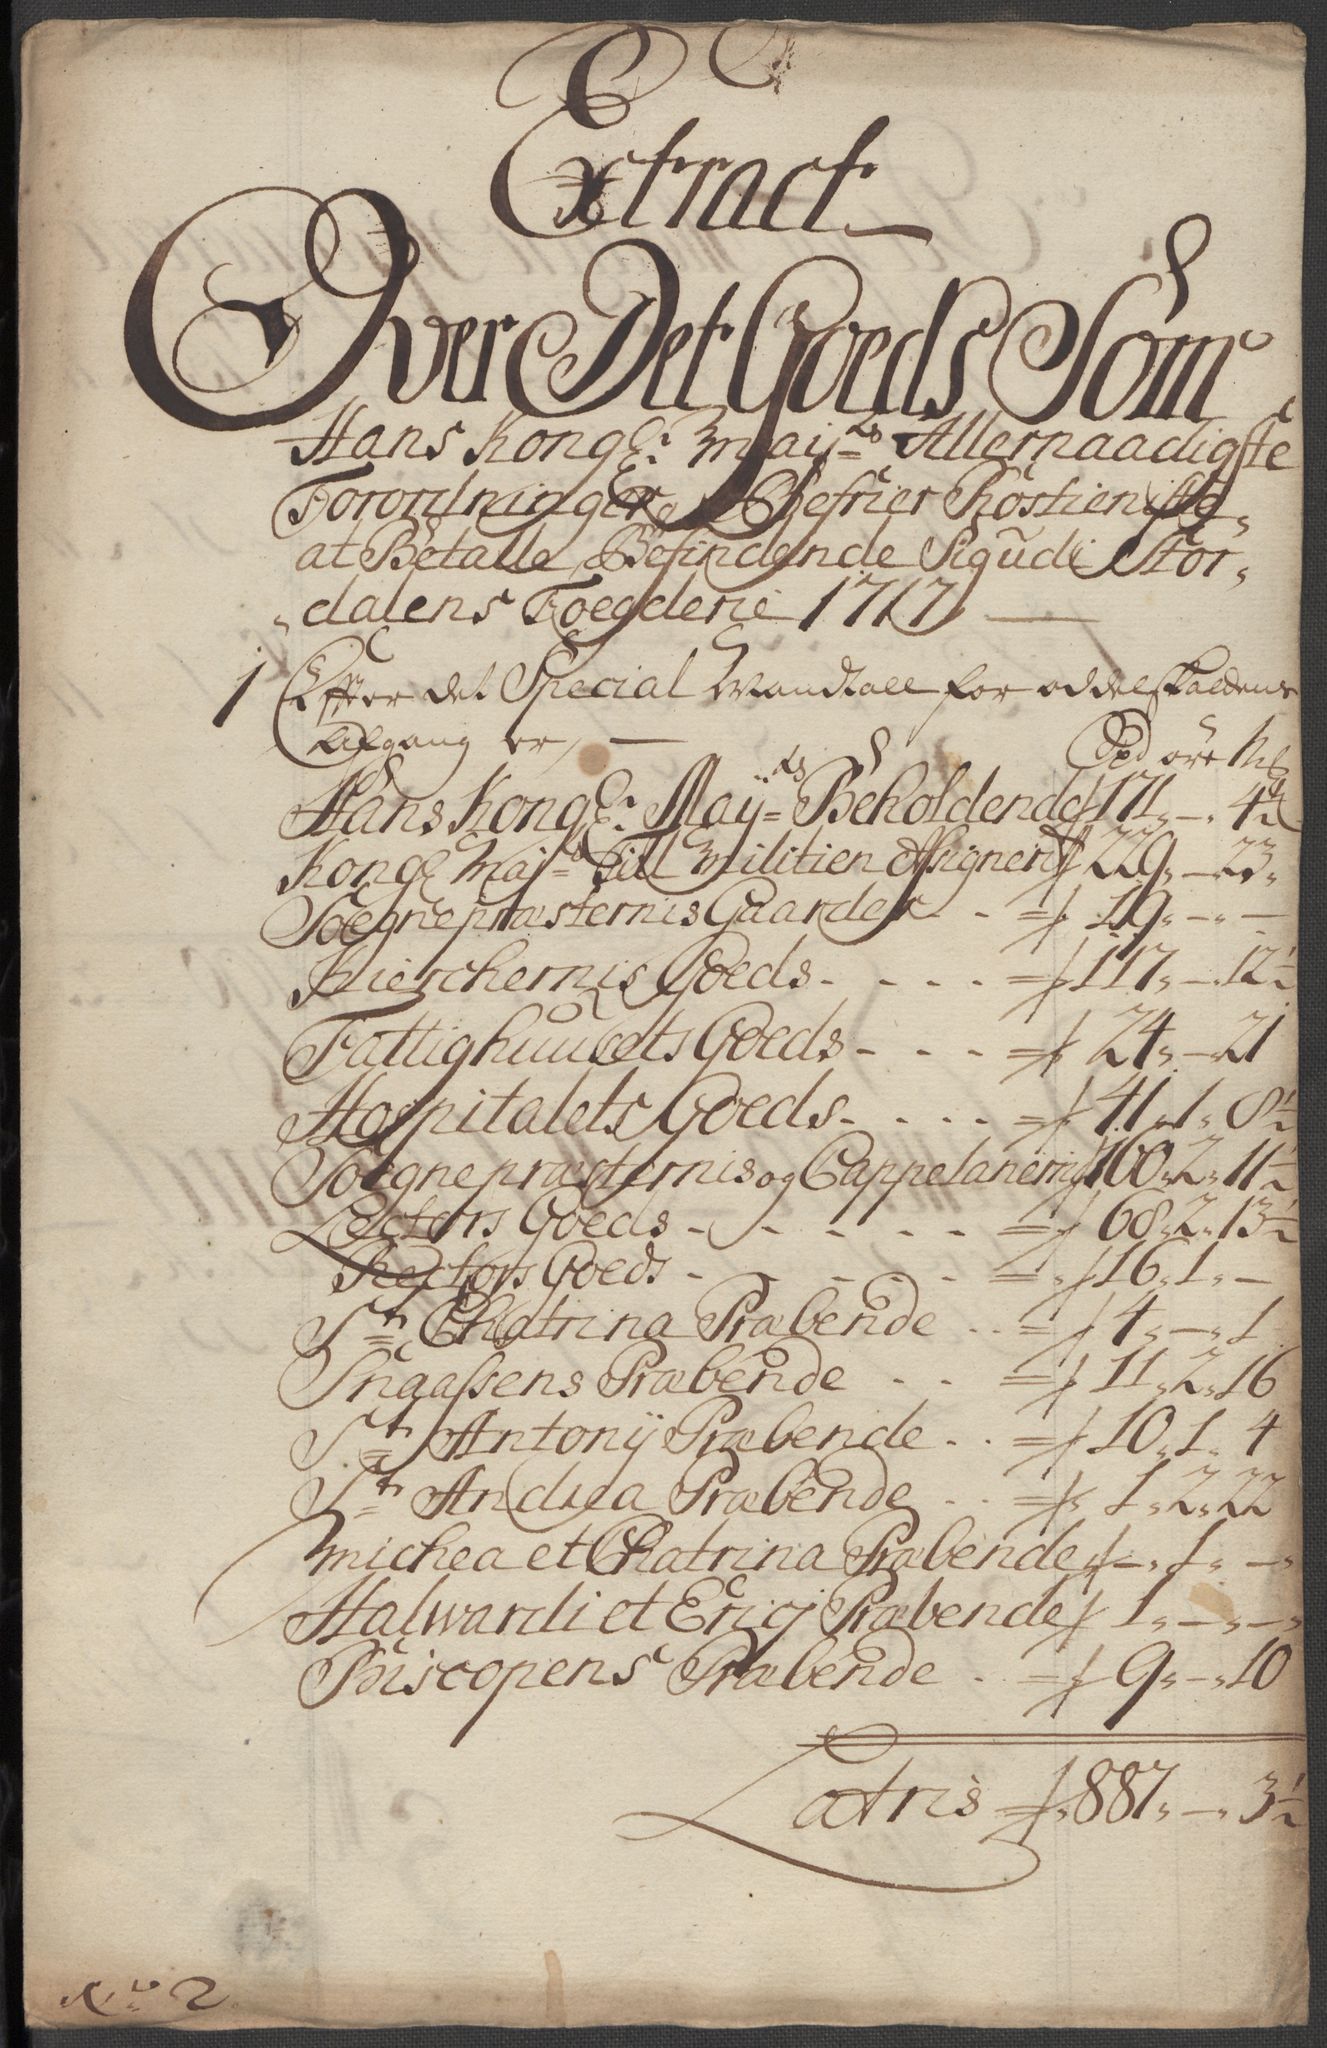 Extract
Over Det Goeds Som
Hans Kongl: Maij:ts Allernaadigste
Forordninger Befrier Rostieniste
at Betalle Befindende Sig udi Stør,
„dalens Foegderie 1717
1 Effter det Special Mandtall for oddelskaldens
Afgang er,
Spd øre Mk
Hans Kongl: Maij:ts Beholdende 171„ — „ 4½
Kongl Maj:ts Till Militien Assignerit 229„ — 23„
Soegnepræsternis Gaarder - - 19„ — „ —
Kierchernis Goeds - - - - 117„ — „ 12½
Fattighuusets Goeds - - - 24„ — 21
Hospitalets Goeds - - - - 41„ 1„ 8½
Soegnepræsternis og Cappelanernis 160„ 2„ 11½
Lectors Goeds - - - - - 68„ 2„ 13½
Rectors Goeds - - - - - 16„ 1„ —
S:t Chatrina Præbende - - 4„ — „ 1
Snaassens Præbende - - 11„ 2„ 16
S:t Antonij Præbende - - 10„ 1„ 4
S:t Andrea Præbende - - 1„ 2„ 22
Michea et Chatrina Præbende — „ 1„ — „
Halwardi et Ericj Præbende 1„ — „ — „
Biscopens Præbende - - 9„ — „ 10
Latris 887„ — „ 3½
N:o 2